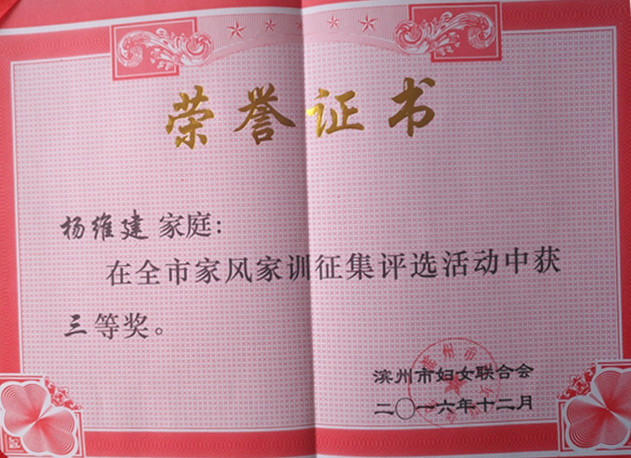 荣誉证书
杨维建家庭：
在全市家风家训征集评选活动中获
三等奖。
滨州市妇女联合会
二〇一六年十二月